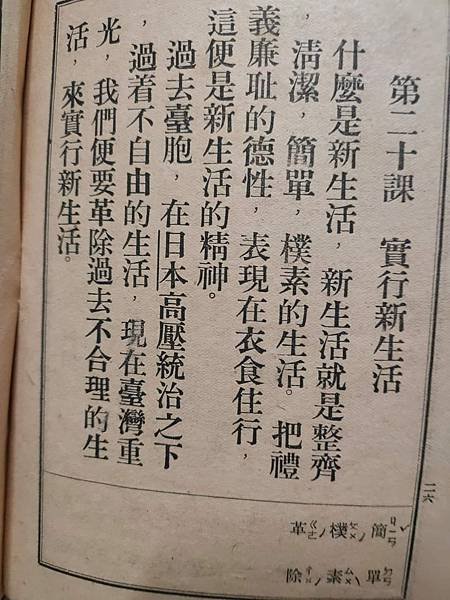 第二十課　實行新生活
什麼是新生活，新生活就是整齊
，淸潔，簡單，樸素的生活。把禮
義廉耻的德性，表現在衣食住行，
這便是新生活的精神。
過去臺胞，在日本高壓統治之下
，過着不自由的生活，現在臺灣重
光，我們便要革除過去不合理的生
活，來實行新生活。
二六
簡ㄐㄧㄢˇ單ㄉㄢ
樸ㄆㄨˊ素ㄙㄨˋ
革ㄍㄜˊ除ㄔㄨˊ